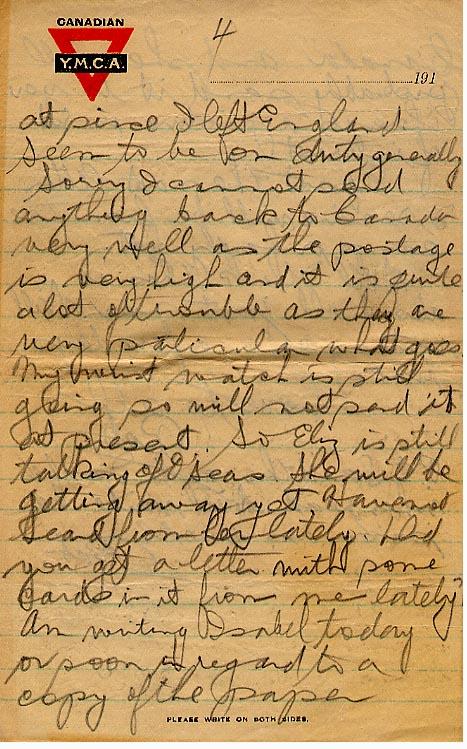 CANADIAN
Y.M.C.A.
4
191
at since I left England
seem to be on duty generally
Sorry I cannot send
anything back to Canada
very well as the postage
is very high and it is quite
a lot of trouble as they are
very paticular what goes
My wrist watch is still
going so will not send it
at present. So Eliz is still
talking of O'Seas She will be
getting away yet. Have not
heard from her lately. Did
you get a letter with some
cards in it from me lately?
Am writing Isabel today
or soon in regard to a
copy of the paper
PLEASE WRITE ON BOTH SIDES.